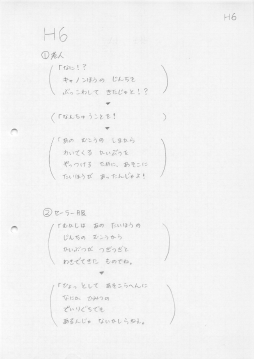 H6
H6
①老人
「なに！？
キャノンほうの じんちを
ぶっこわして きたじゃと！？
「なんちゅうことを！
「あの むこうの しまから
わいてくる かいぶつを
やっつける ために あそこに
たいほうが あったんじゃよ！
②セーラー服
「わたしは あの たいほうの
じんちの むこうから
かいぶつが つぎつぎと
わきでてきた ものでね。
「ひょっとして あそこらへんに
なにか ひみつの
でいりぐちでも
あるんじゃ ないかしらねえ。